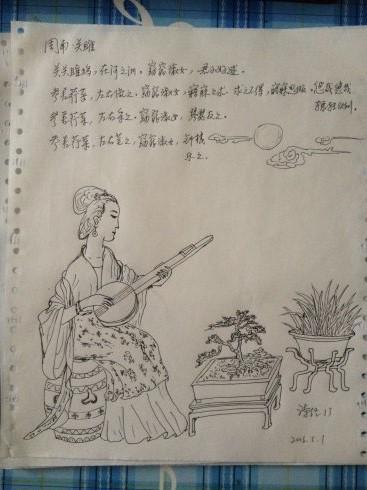 周南·关雎
关关雎鸠，在河之洲。窈窕淑女，君子好逑。
参差荇菜，左右流之。窈窕淑女，寤寐求之。求之不得，寤寐思服。悠哉悠哉
辗转反侧。
参差荇菜，左右采之。窈窕淑女，琴瑟友之。
参差荇菜，左右芼之。窈窕淑女，钟鼓
乐之。
诗经
2016.5.1